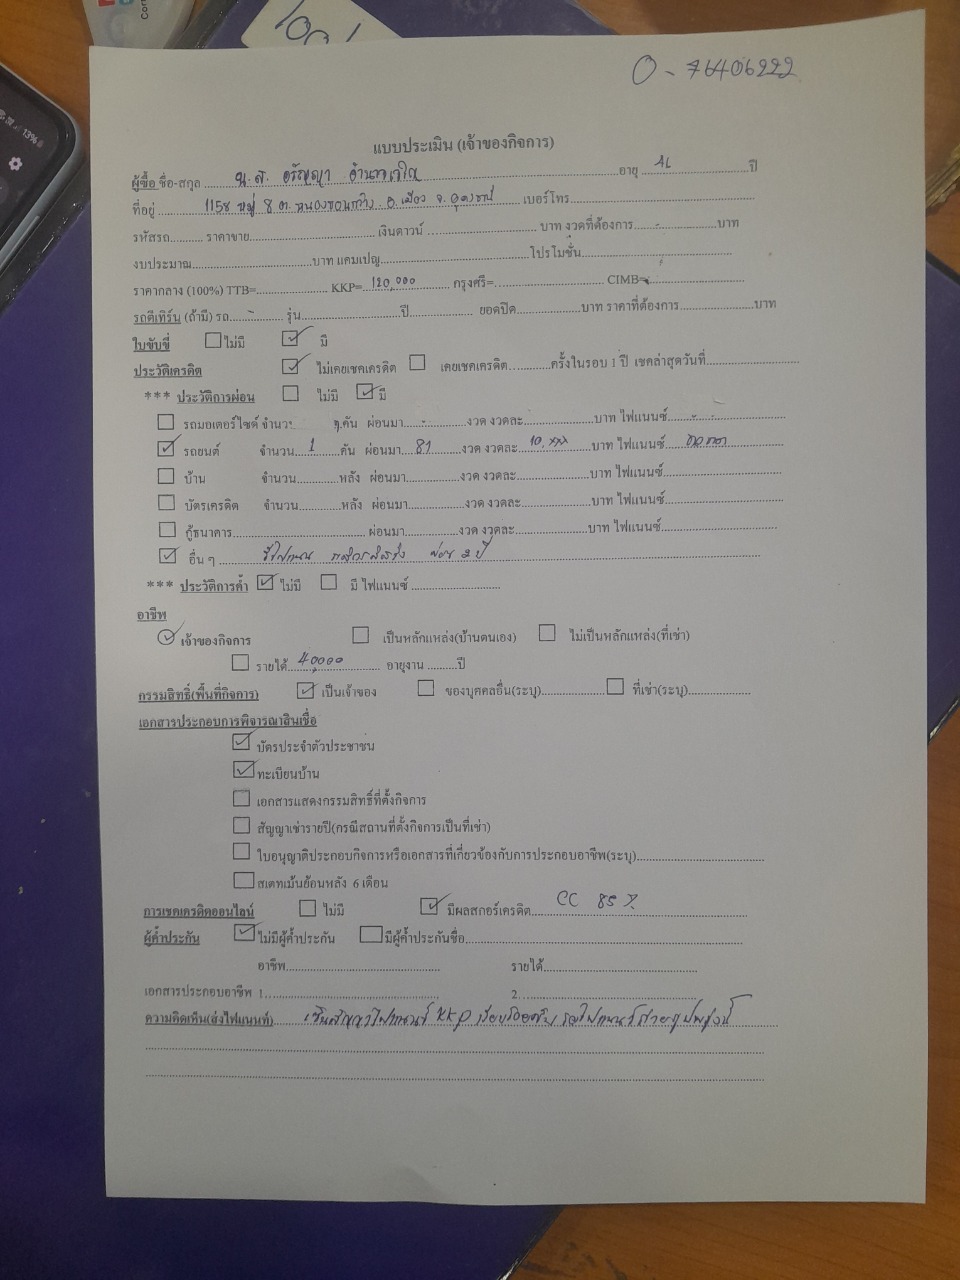 13%
O - 76406222
แบบประเมิน (เจ้าของกิจการ)
ผู้ซื้อ ชื่อ-สกุล น.ส. อรัญญา อายุ ปี
ที่อยู่ 1158 หมู่ 8 ต. หนองขอนกว้าง อ. เมือง จ. อุดรธานี เบอร์โทร
รหัสรถ ราคาขาย เงินดาวน์ บาท งวดที่ต้องการ - บาท
งบประมาณ บาท แคมเปญ โปรโมชั่น
ราคากลาง (100%) TTB= KKP= 120,000 กรุงศรี= CIMB=
รถตีเทิร์น (ถ้ามี) รถ - รุ่น ปี ยอดปิด บาท ราคาที่ต้องการ บาท
ใบขับขี่ ไม่มี มี
ประวัติเครดิต ไม่เคยเชคเครดิต เคยเชคเครดิต ครั้งในรอบ 1 ปี เชคล่าสุดวันที่
*** ประวัติการผ่อน ไม่มี มี
รถมอเตอร์ไซด์ จำนวน คัน ผ่อนมา - งวด งวดละ - บาท ไฟแนนซ์ -
รถยนต์ จำนวน 1 คัน ผ่อนมา 81 งวด งวดละ 10,xxx บาท ไฟแนนซ์
บ้าน จำนวน หลัง ผ่อนมา งวด งวดละ บาท ไฟแนนซ์
บัตรเครดิต จำนวน หลัง ผ่อนมา งวด งวดละ บาท ไฟแนนซ์
กู้ธนาคาร ผ่อนมา งวด งวดละ บาท ไฟแนนซ์
อื่น ๆ 2 ปี
*** ประวัติการค้ำ ไม่มี มี ไฟแนนซ์
อาชีพ
เจ้าของกิจการ เป็นหลักแหล่ง(บ้านตนเอง) ไม่เป็นหลักแหล่ง(ที่เช่า)
รายได้ 40,000 อายุงาน ปี
กรรมสิทธิ์(พื้นที่กิจการ) เป็นเจ้าของ ของบุคคลอื่น(ระบุ) ที่เช่า(ระบุ)
เอกสารประกอบการพิจารณาสินเชื่อ
บัตรประจำตัวประชาชน
ทะเบียนบ้าน
เอกสารแสดงกรรมสิทธิ์ที่ตั้งกิจการ
สัญญาเช่ารายปี(กรณีสถานที่ตั้งกิจการเป็นที่เช่า)
ใบอนุญาติประกอบกิจการหรือเอกสารที่เกี่ยวข้องกับการประกอบอาชีพ(ระบุ)
สเตทเม้นย้อนหลัง 6 เดือน
การเชคเครดิตออนไลน์ ไม่มี มีผลสกอร์เครดิต CC 85 %
ผู้ค้ำประกัน ไม่มีผู้ค้ำประกัน มีผู้ค้ำประกันชื่อ
อาชีพ รายได้
เอกสารประกอบอาชีพ 1. 2.
ความคิดเห็น(ส่งไฟแนนท์) เซ็นสัญญาไฟแนนซ์ KKP เรียบร้อยครับ รอไฟแนนซ์